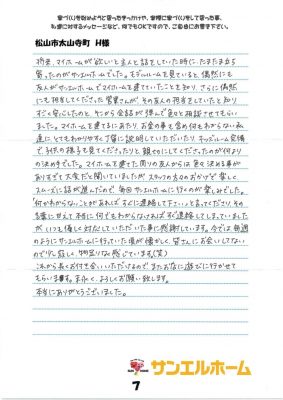 家づくりを始めようと思ったきっかけや、実際に家づくりをして思った事、
私達に対するメッセージなど、何でもOKですので、ご自由にお書き下さい。
松山市太山寺町 H様
将来、マイホームが欲しいと主人と話をしていた時に、たまたま立ち
寄ったのがサンエルホームでした。モデルルームを見ていると、偶然にも
友人がサンエルホームでマイホームを建てていたことを知り、さらに偶然
にも担当してくださった営業さんが、その友人の担当をしていたと知り
すごく安心したのと、そこから会話が弾んで色々と相談させてもらい
ました。マイホームを建てるにあたり、お金の事を含め何もわからない私
達に、とてもわかりやすく丁寧に説明していただいたり、キッズルーム
で子供の様子を見てくださったりと、親切にしてくださったのが何より
の決め手でした。マイホームを建てた周りの友人からは色々決める事が
ありすぎて大変だと聞いていましたが、スタッフの方々のおかげで楽しく
スムーズに話が進んだので、毎回サンエルホームに行くのが楽しみでした。
何かわからないことがあれば、すぐに連絡して下さいと言ってくださり、その
言葉に甘えて本当に何でもわからなければすぐ連絡してしまっていました
が、いつも優しく対応していただいた事に感謝しています。今では毎週
のようにサンエルホームに行っていた頃が懐かしく、皆さんにお会いしてない
ので少し寂しく、物足りなく感じています(笑)
これから長くお付き合いいただけるので、またお店に遊びに行かせて
もらいます。末永く、よろしくお願い致します。
本当にありがとうございました。
サンエルホーム
7